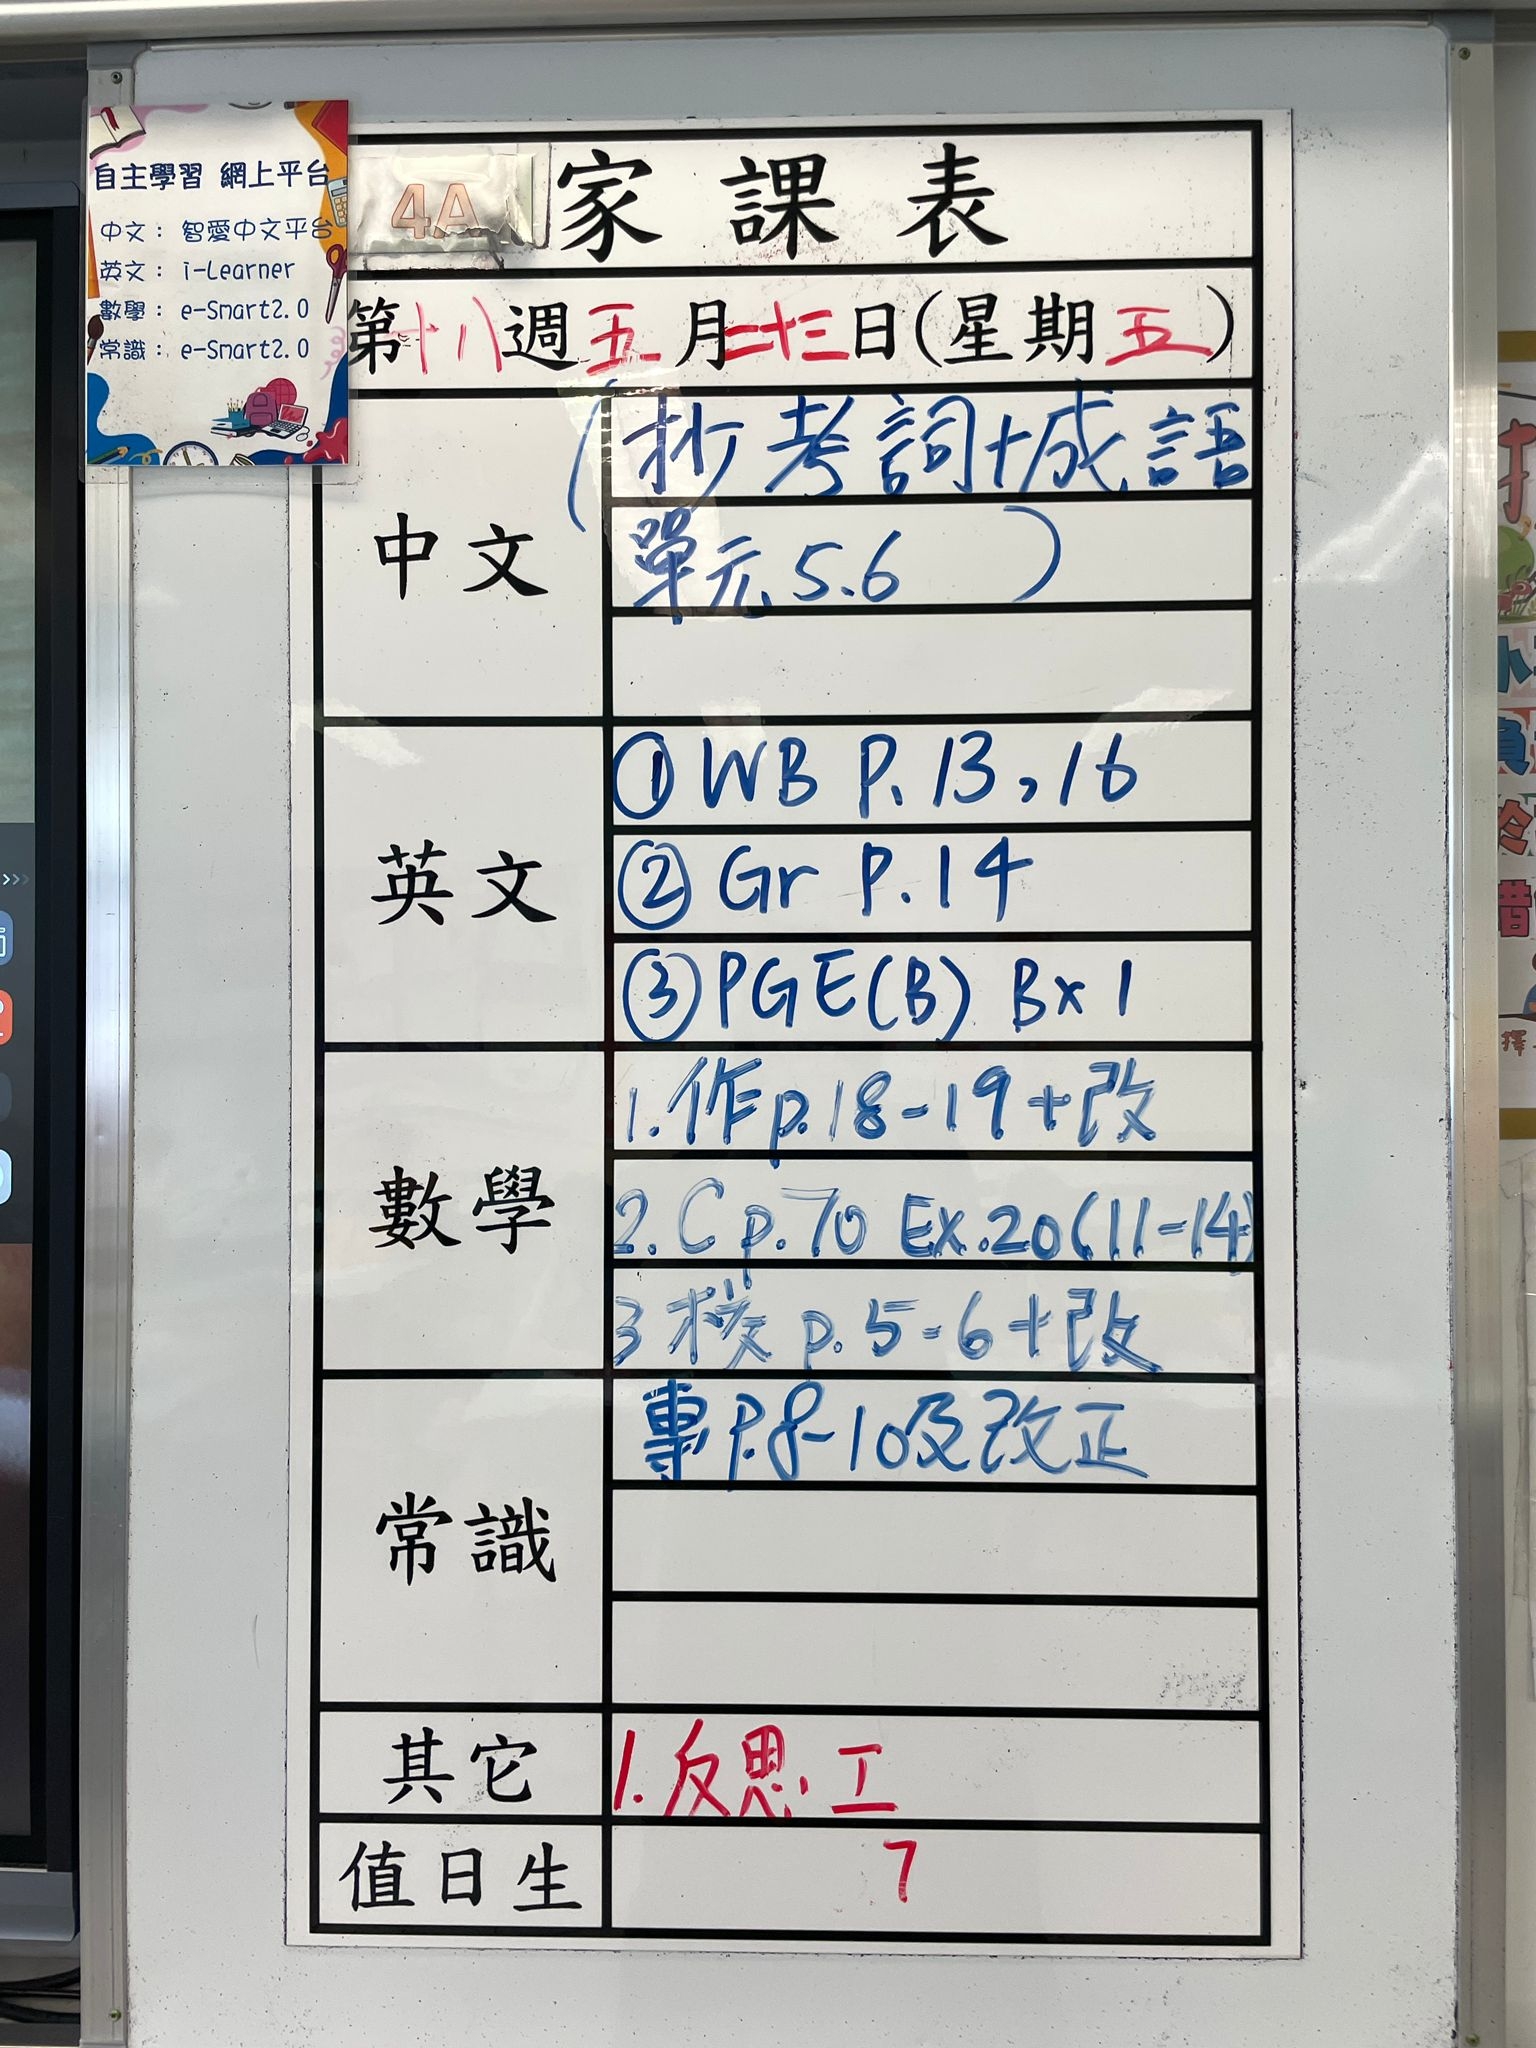 自主學習 網上平台
中文： 智愛中文平台
英文： i-Learner
數學： e-Smart2.0
常識： e-Smart2.0
4A 家課表
第十八週五月二十三日(星期五)
中文
(抄考詞+成語
單元 5.6 )
英文
① WB P. 13, 16
② Gr P. 14
③ PGE(B) Bx1
數學
1. 作 p.18-19+改
2. C p.70 Ex.20(11-14)
3 校 p.5-6+改
常識
專 P.8-10及改正
其它
1. 反思. 工
值日生
7